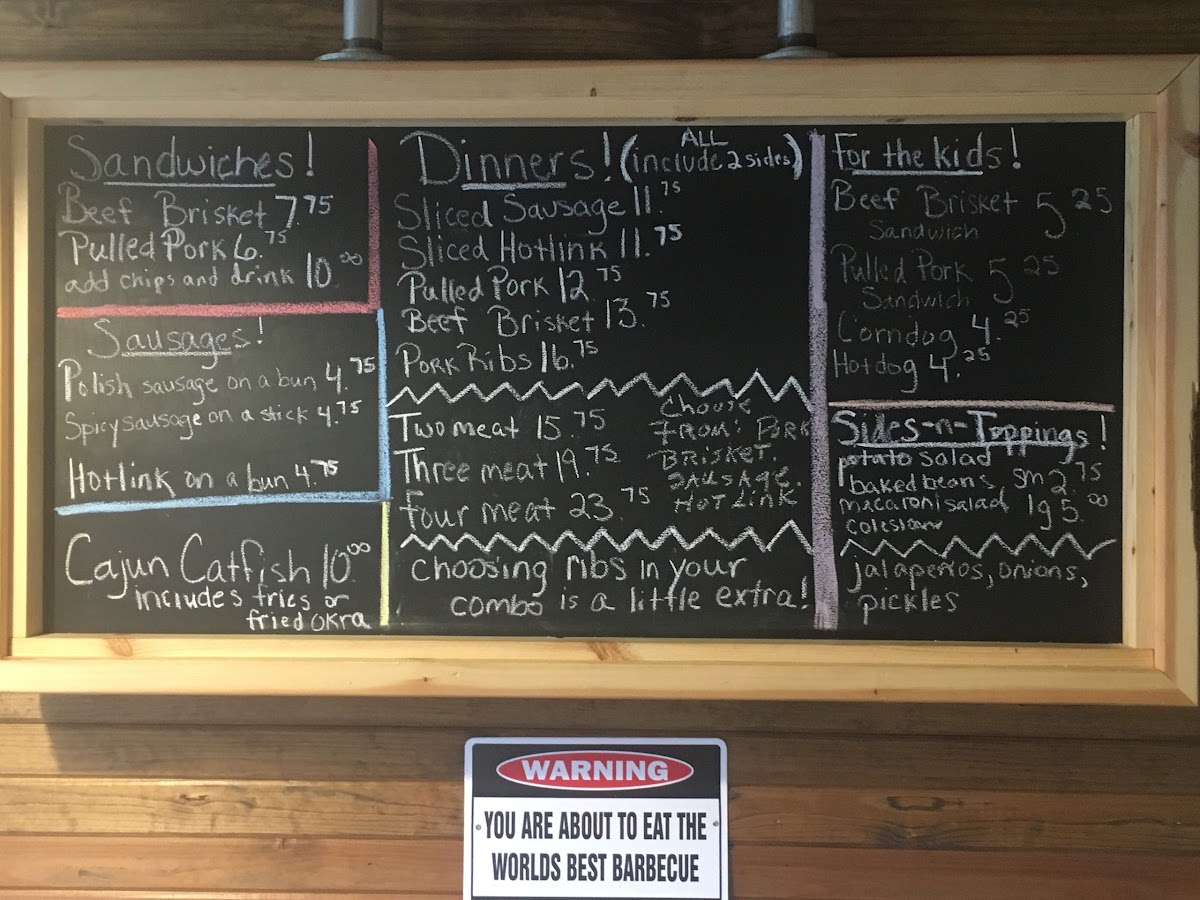 Sandwiches!
Beef Brisket 7.75
Pulled Pork 6.75
add chips and drink 10.00
Sausages!
Polish sausage on a bun 4.75
Spicy sausage on a stick 4.75
Hotlink on a bun 4.75
Cajun Catfish 10.00
includes fries or
fried okra
Dinners! (ALL include 2 sides)
Sliced Sausage 11.75
Sliced Hotlink 11.75
Pulled Pork 12.75
Beef Brisket 13.75
Pork Ribs 16.75
Two meat 15.75
Three meat 19.75
four meat 23.75
Choose
From: Pork
Brisket.
Sausage.
Hot Link
choosing ribs in your
combo is a little extra!
For the kids!
Beef Brisket 5.25
Sandwich
Pulled Pork 5.25
Sandwich
Corndog 4.25
Hotdog 4.25
Sides-n-Toppings!
potato salad
baked beans sm 2.75
macaroni salad lg 5.00
coleslaw
jalapeños, onions,
pickles
WARNING
YOU ARE ABOUT TO EAT THE
WORLDS BEST BARBECUE